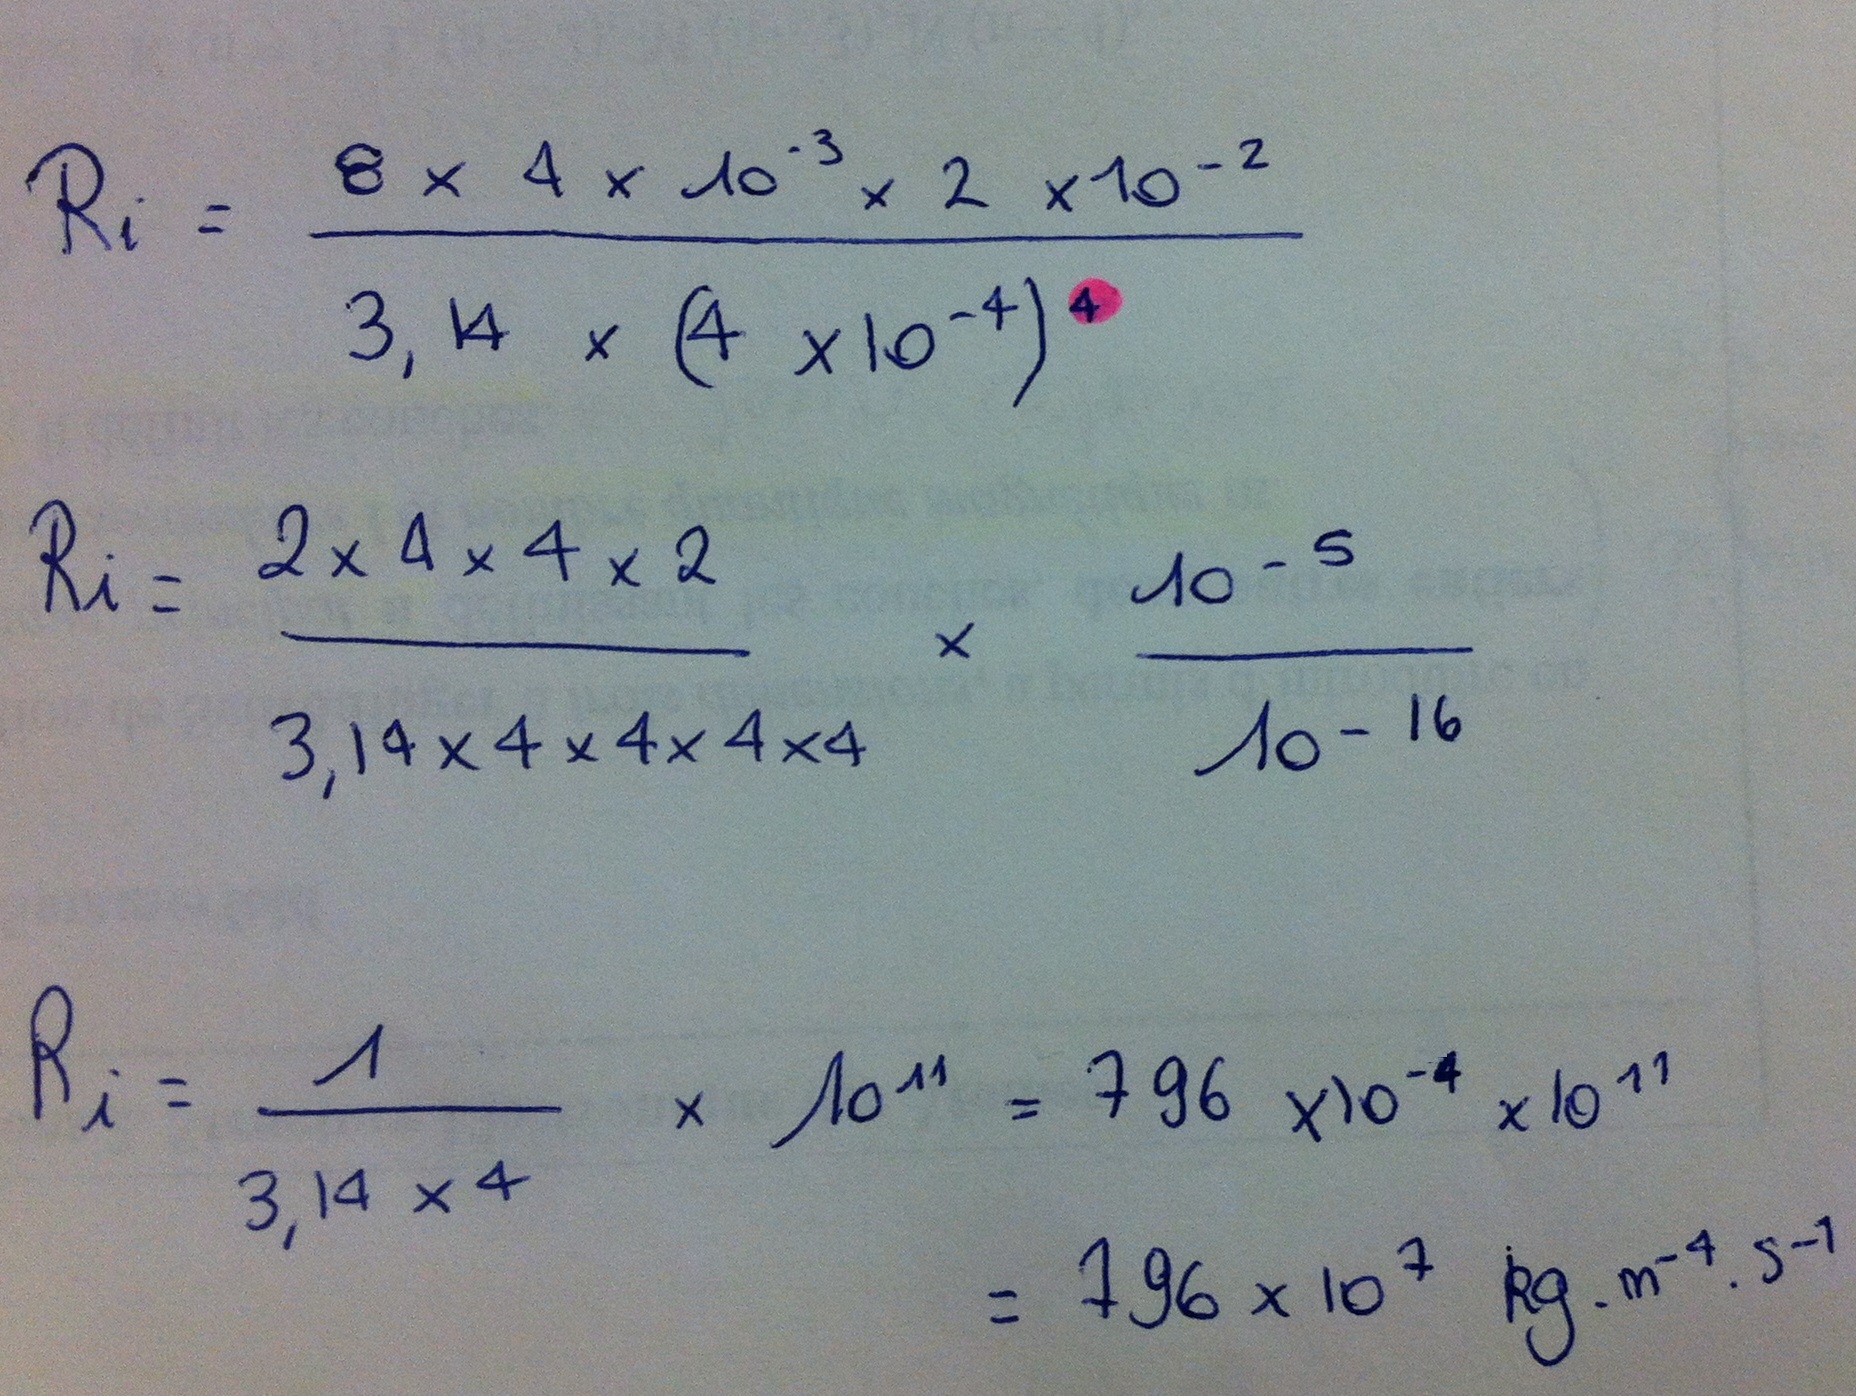 Ri = 8 × 4 × 10⁻³ × 2 × 10⁻²
3,14 × (4 × 10⁻⁴)⁴
Ri = 2 × 4 × 4 × 2 × 10⁻⁵
3,14 × 4 × 4 × 4 × 4 10⁻¹⁶
Ri = 1 × 10¹¹ = 796 × 10⁻⁴ × 10¹¹
3,14 × 4
= 796 × 10⁷ kg . m⁻⁴ . s⁻¹